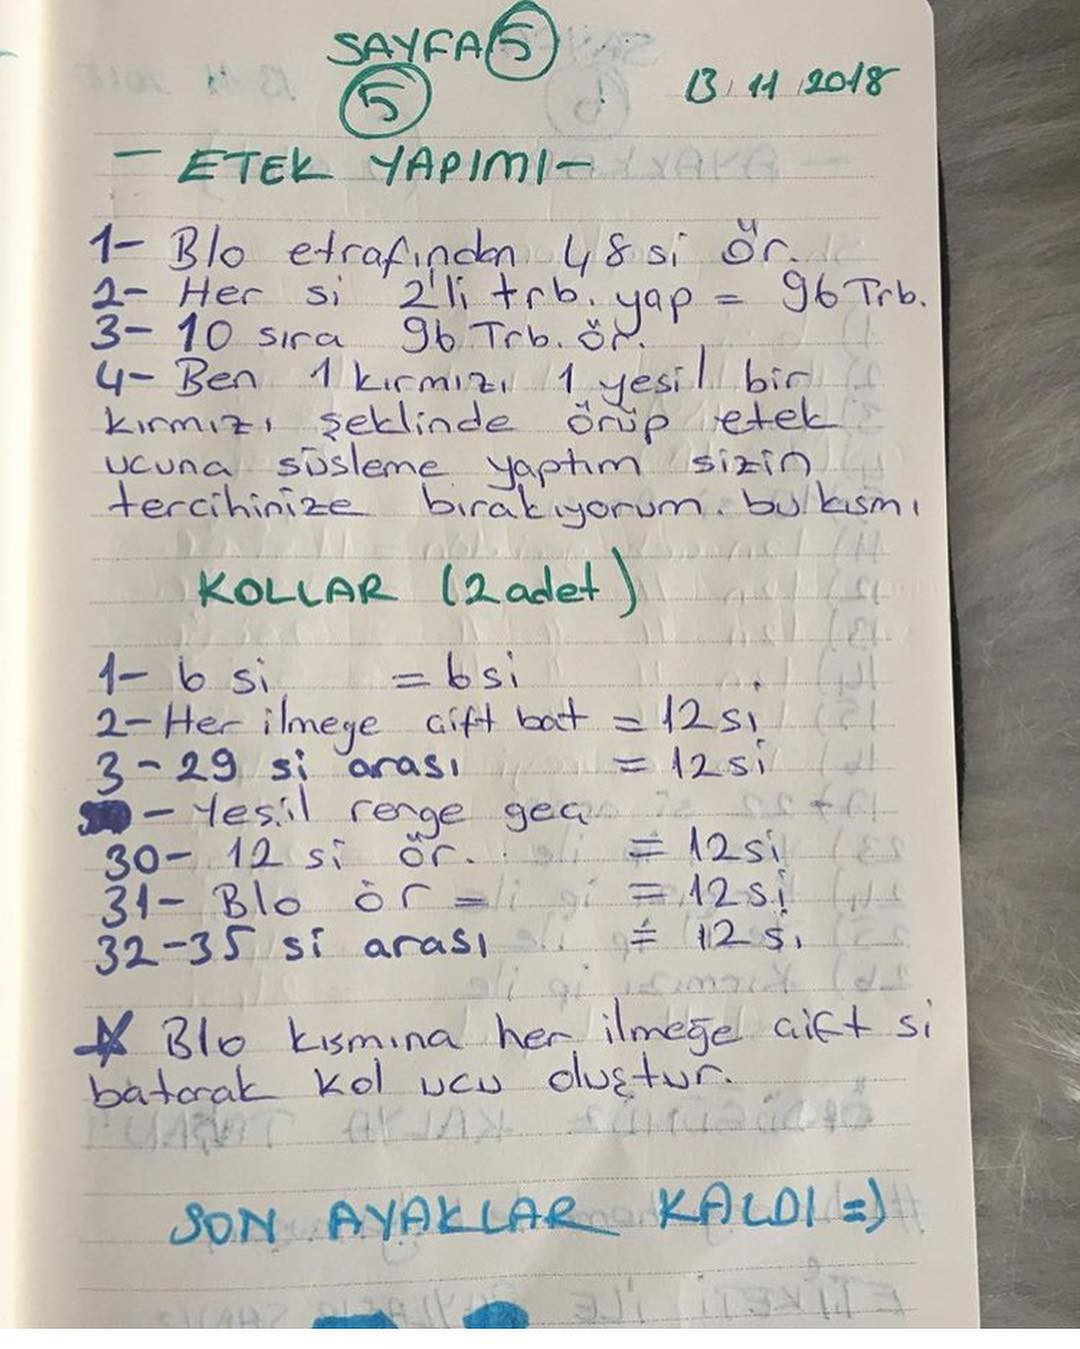 SAYFA 5
5
13.11.2018
- ETEK YAPIMI -
1- Blo etrafından 48 si ör.
2- Her si 2'li trb. yap = 96 Trb.
3- 10 sıra 96 Trb. ör.
4- Ben 1 kırmızı 1 yesil bir
kırmızı şeklinde örüp etek
ucuna süsleme yaptım sizin
tercihinize bırakıyorum. bu kısmı
KOLLAR (2 adet)
1- 6 si = 6 si
2- Her ilmeye çift bat = 12 si
3-29 si arası = 12 si
- Yeşil renge geç
30- 12 si ör. = 12 si
31- Blo ör = = 12 si
32-35 si arası = 12 si
Blo kısmına her ilmeğe çift si
batarak kol ucu oluştur.
SON AYAKLAR KALDI =)